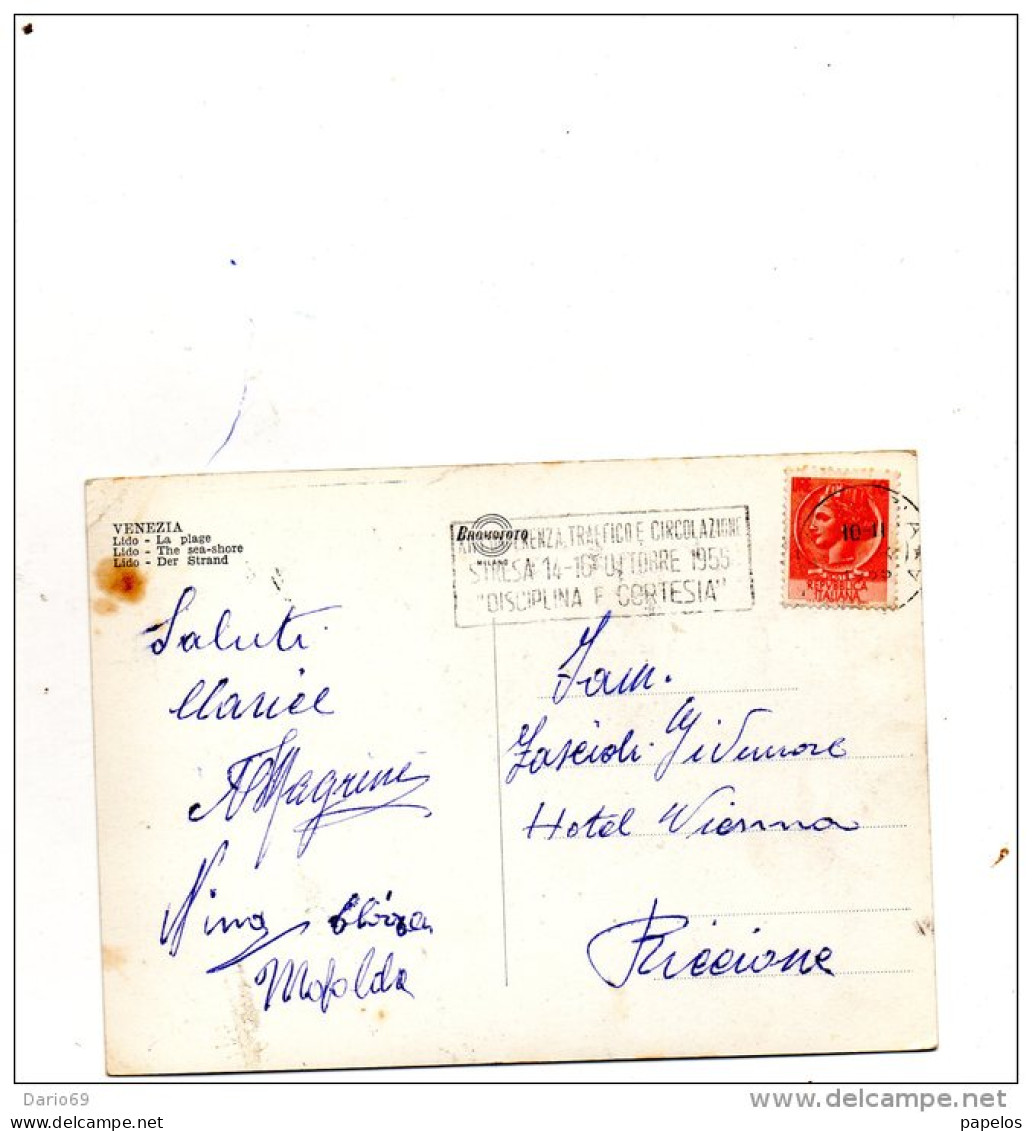 VENEZIA
Lido - La plage
Lido - The sea-shore
Lido - Der Strand
BROMOFOTO
CONFERENZA, TRAFFICO E CIRCOLAZIONE
STRESA 14-16 OTTOBRE 1955
"DISCIPLINA E CORTESIA"
10-11
REPUBBLICA
ITALIANA
Saluti
Clarice
Magrini
Nino
Mafalda
Fam.
Hotel Vienna
Riccione
Dario69
www.delcampe.net
papelos